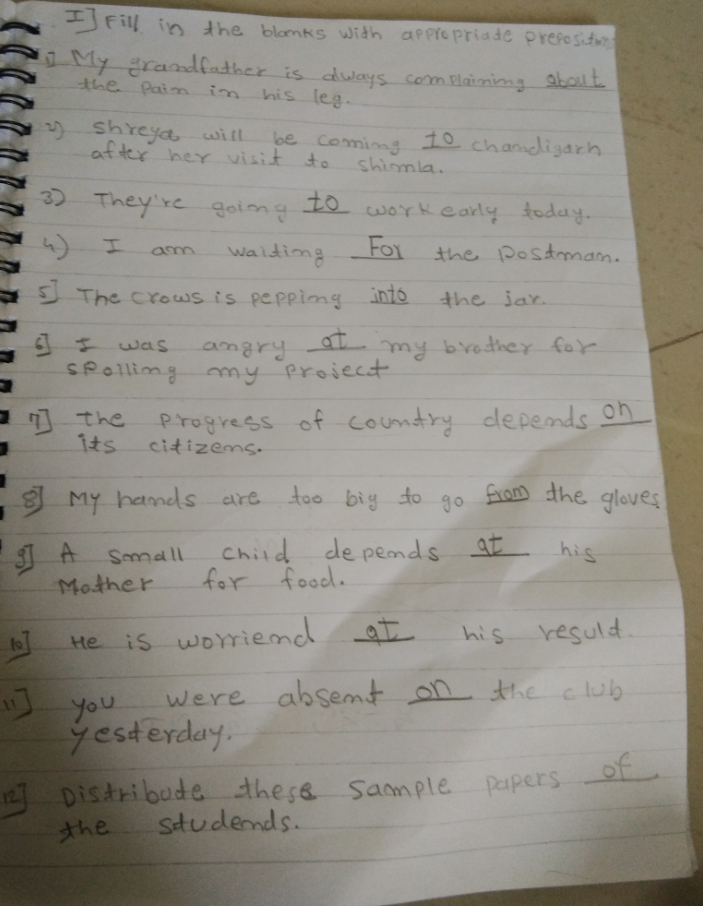 I] Fill in the blanks with appropriade prepositions
1) My grandfather is always complaining about
the pain in his leg.
2) Shreya will be coming to chandigarh
after her visit to shimla.
3) They're going to work early today.
4) I am waiting For the Postman.
5] The crows is pepping into the jar.
6] I was angry at my brother for
spolling my Project
7] the progress of country depends on
its citizens.
8] My hands are too big to go from the gloves
9] A small child depends at his
Mother for food.
10] He is worriend at his resuld.
11] you were absent on the club
yesterday.
12] Distribude these sample papers of
the studends.